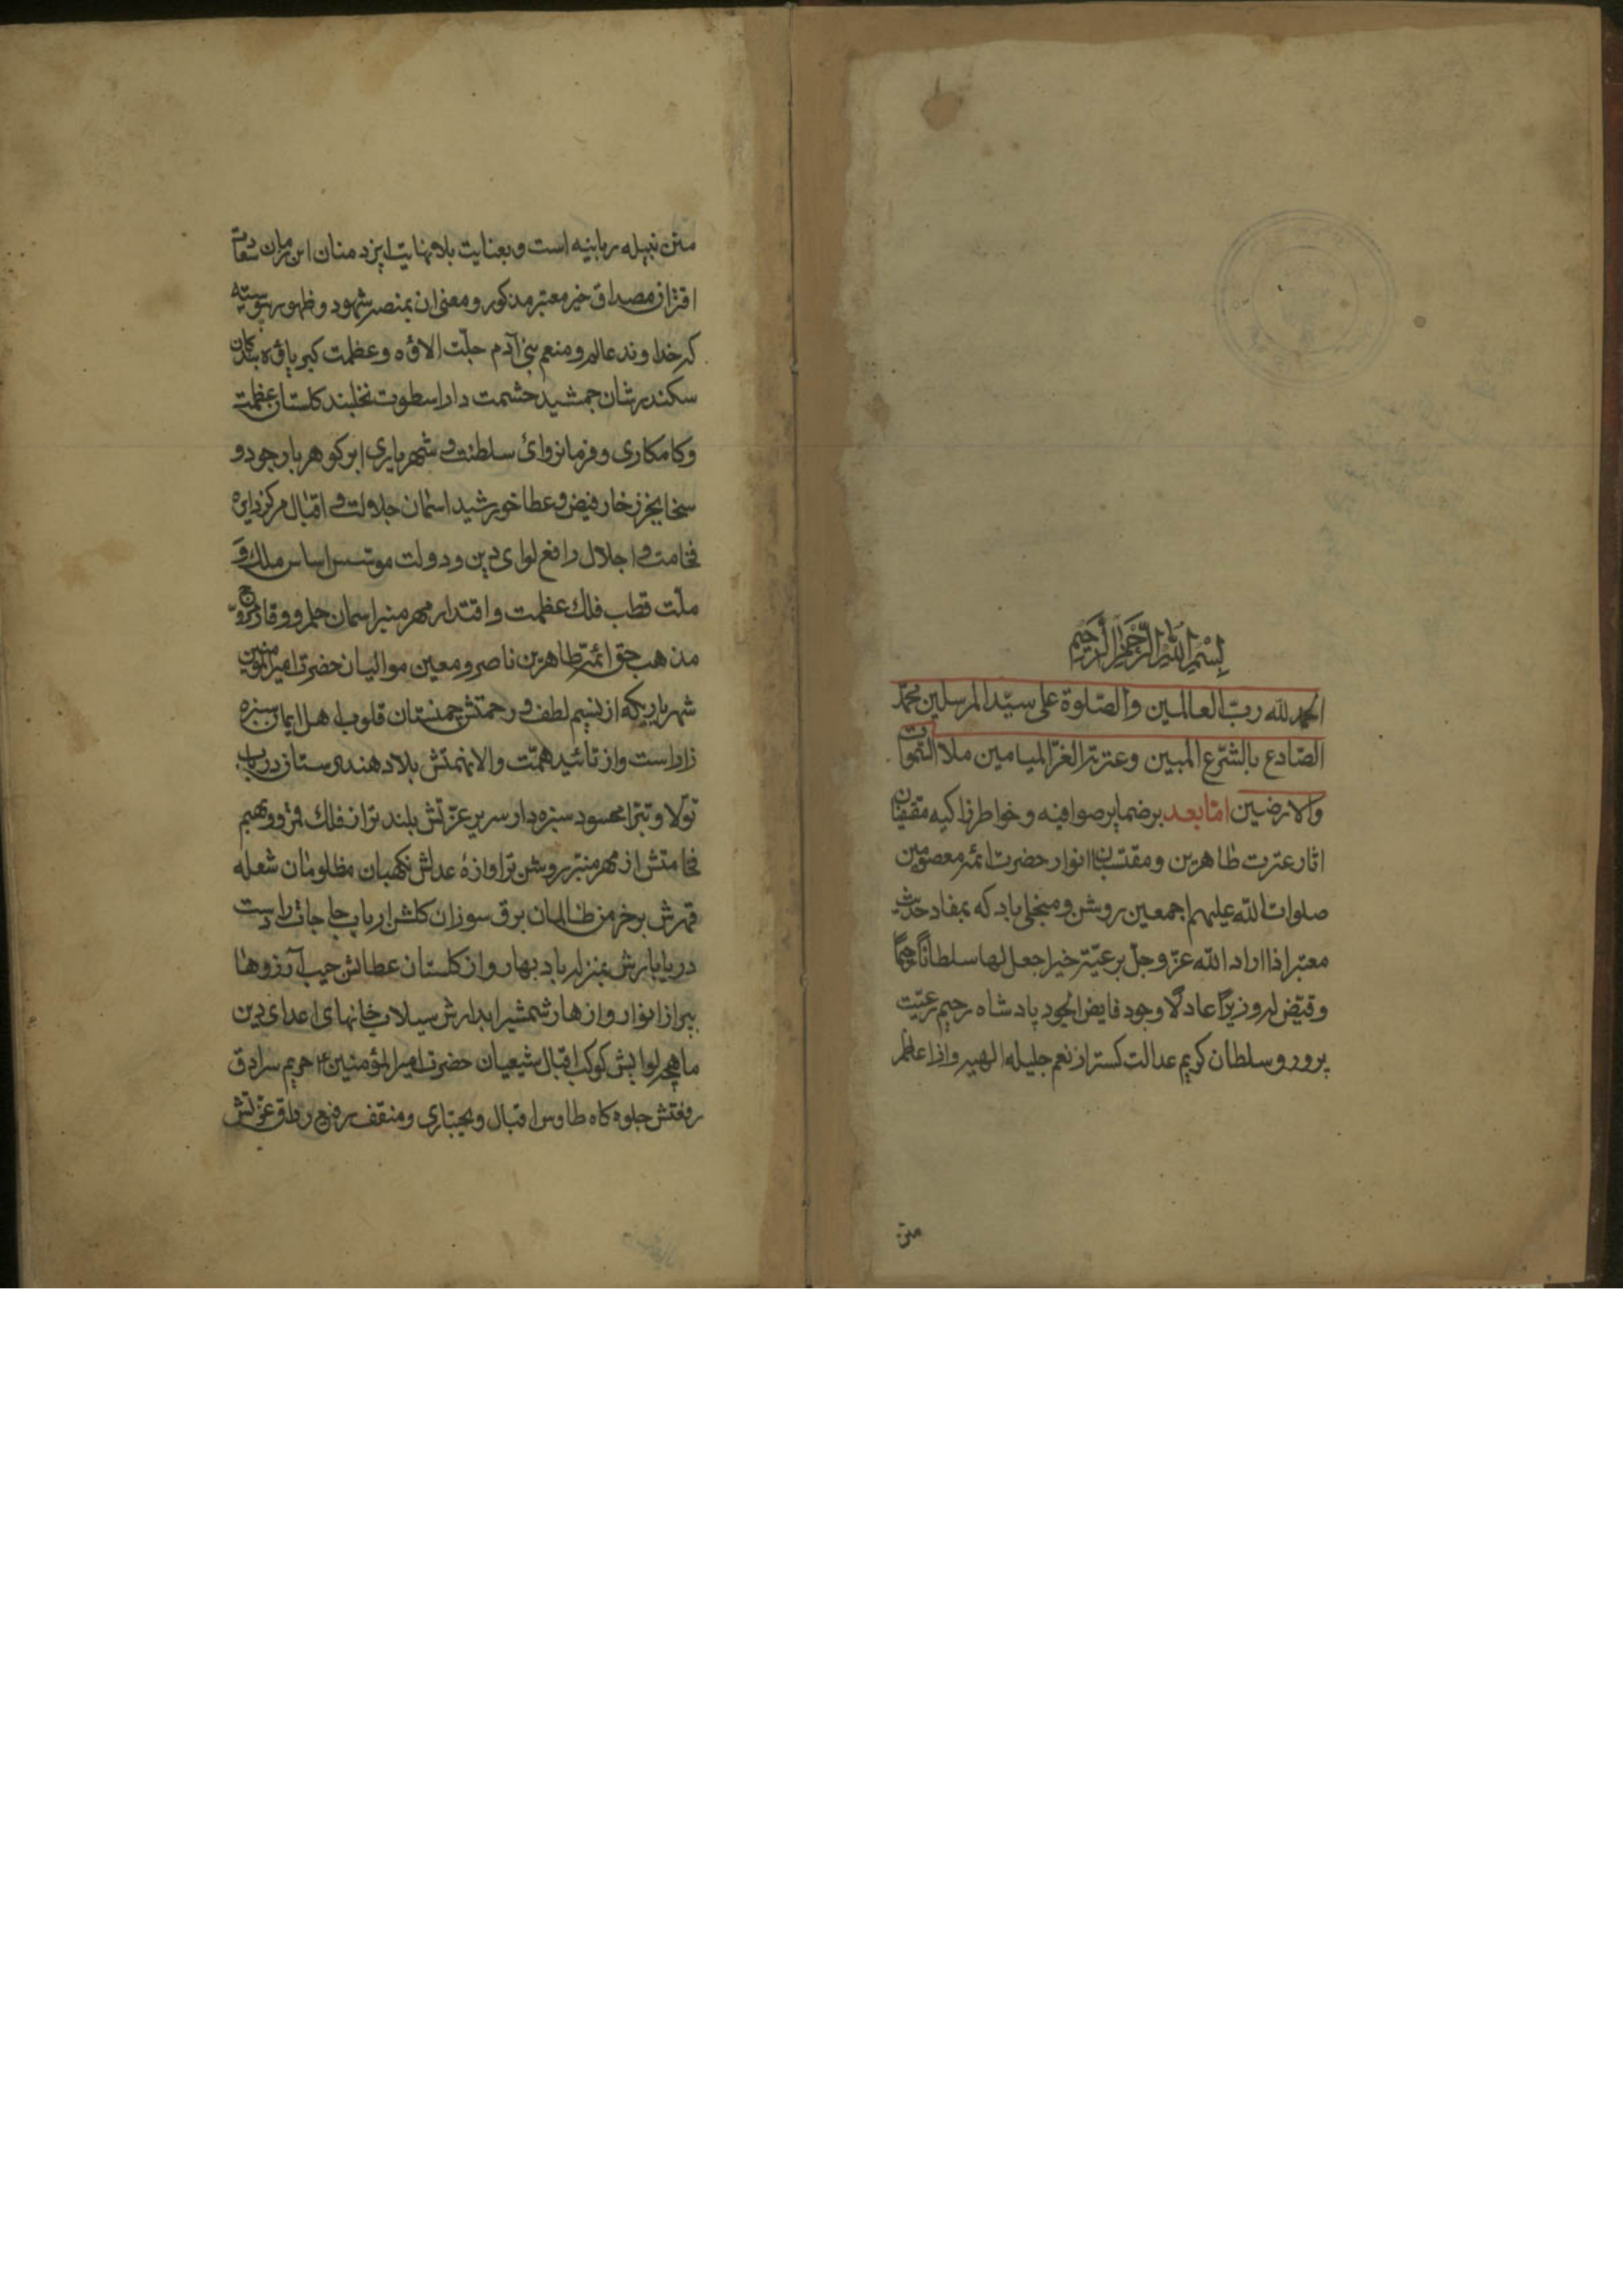 بسم الله الرحمن الرحیم
الحمد لله ربّ العالمین والصّلوة علی سیّد المرسلین محمّد
الصّادع بالشّرع المبین وعترته الغرّ المیامین ملأ السّموات
والارضین امّا بعد بر ضمایر صوافیه و خواطر زاکیه مقتفیان
اثار عترت طاهرین و مقتبسان انوار حضرت ائمّه معصومین
صلوات الله علیهم اجمعین روشن و منجلی باد که بمفاد حدیث
معتبر اذا اراد الله عزّ وجلّ برعیّة خیرا جعل لها سلطانًا رحیمًا
وقیّض له وزیرًا عادلًا وجود فایض الجود پادشاه رحیم رعیّت
پرور و سلطان کریم عدالت کستر از نعم جلیله الهیه و از اعاظم
منن
منن نبیله ربانیه است و بعنایت بلانهایت ایزد منان این زمان سعادت
اقتران مصداق خبر معتبر مذکور و معنی ان بمنصه شهود و ظهور پیوسته
که خداوند عالم و منعم بنی آدم جلّت الاؤه و عظمت کبریاؤه بندکان
سکندر شان جمشید حشمت دارا سطوت نخلبند کلستان عظمت
و کامکاری و فرمانروائ سلطنت و شهریاری ابر کوهر بار جود و
سخا بحر زخار فیض و عطا خورشید اسمان جلالت و اقبال مرکز دایره
فخامت و اجلال رافع لوای دین و دولت موسّس اساس ملک و
ملّت قطب فلک عظمت و اقتدار مهر منیر اسمان حلم و وقار مروّج
مذهب حق ائمّه طاهرین ناصر و معین موالیان حضرت امیرالمؤمنین
شهریاریکه از نسیم لطف و رحمتش چمنستان قلوب اهل ایمان سبزه
زار است و از تائید همّت والا نهمتش بلاد هندوستان در باب
تولّا و تبرّا محسود سبزه‌دار سریر عزّتش بلند تر از فلک قمر و دیهیم
فخامتش از مهر منیر روشن تر اوازهٔ عدلش نکهبان مظلومان شعله
قهرش بر خرمن ظالمان برق سوزان کلشن ارباب حاجات را دست
دریا بارش بمنزله باد بهار و از کلستان عطایش جیب آرزوها
پر از انوار و ازهار شمشیر ابدارش سیلاب خانهای اعدای دین
ماهچه لوایش کوکب اقبال شیعیان حضرت امیرالمؤمنین ع حریم سرادق
رفعتش جلوه کاه طاوس اقبال و بختیاری و سقف رفیع رواق عزّتش